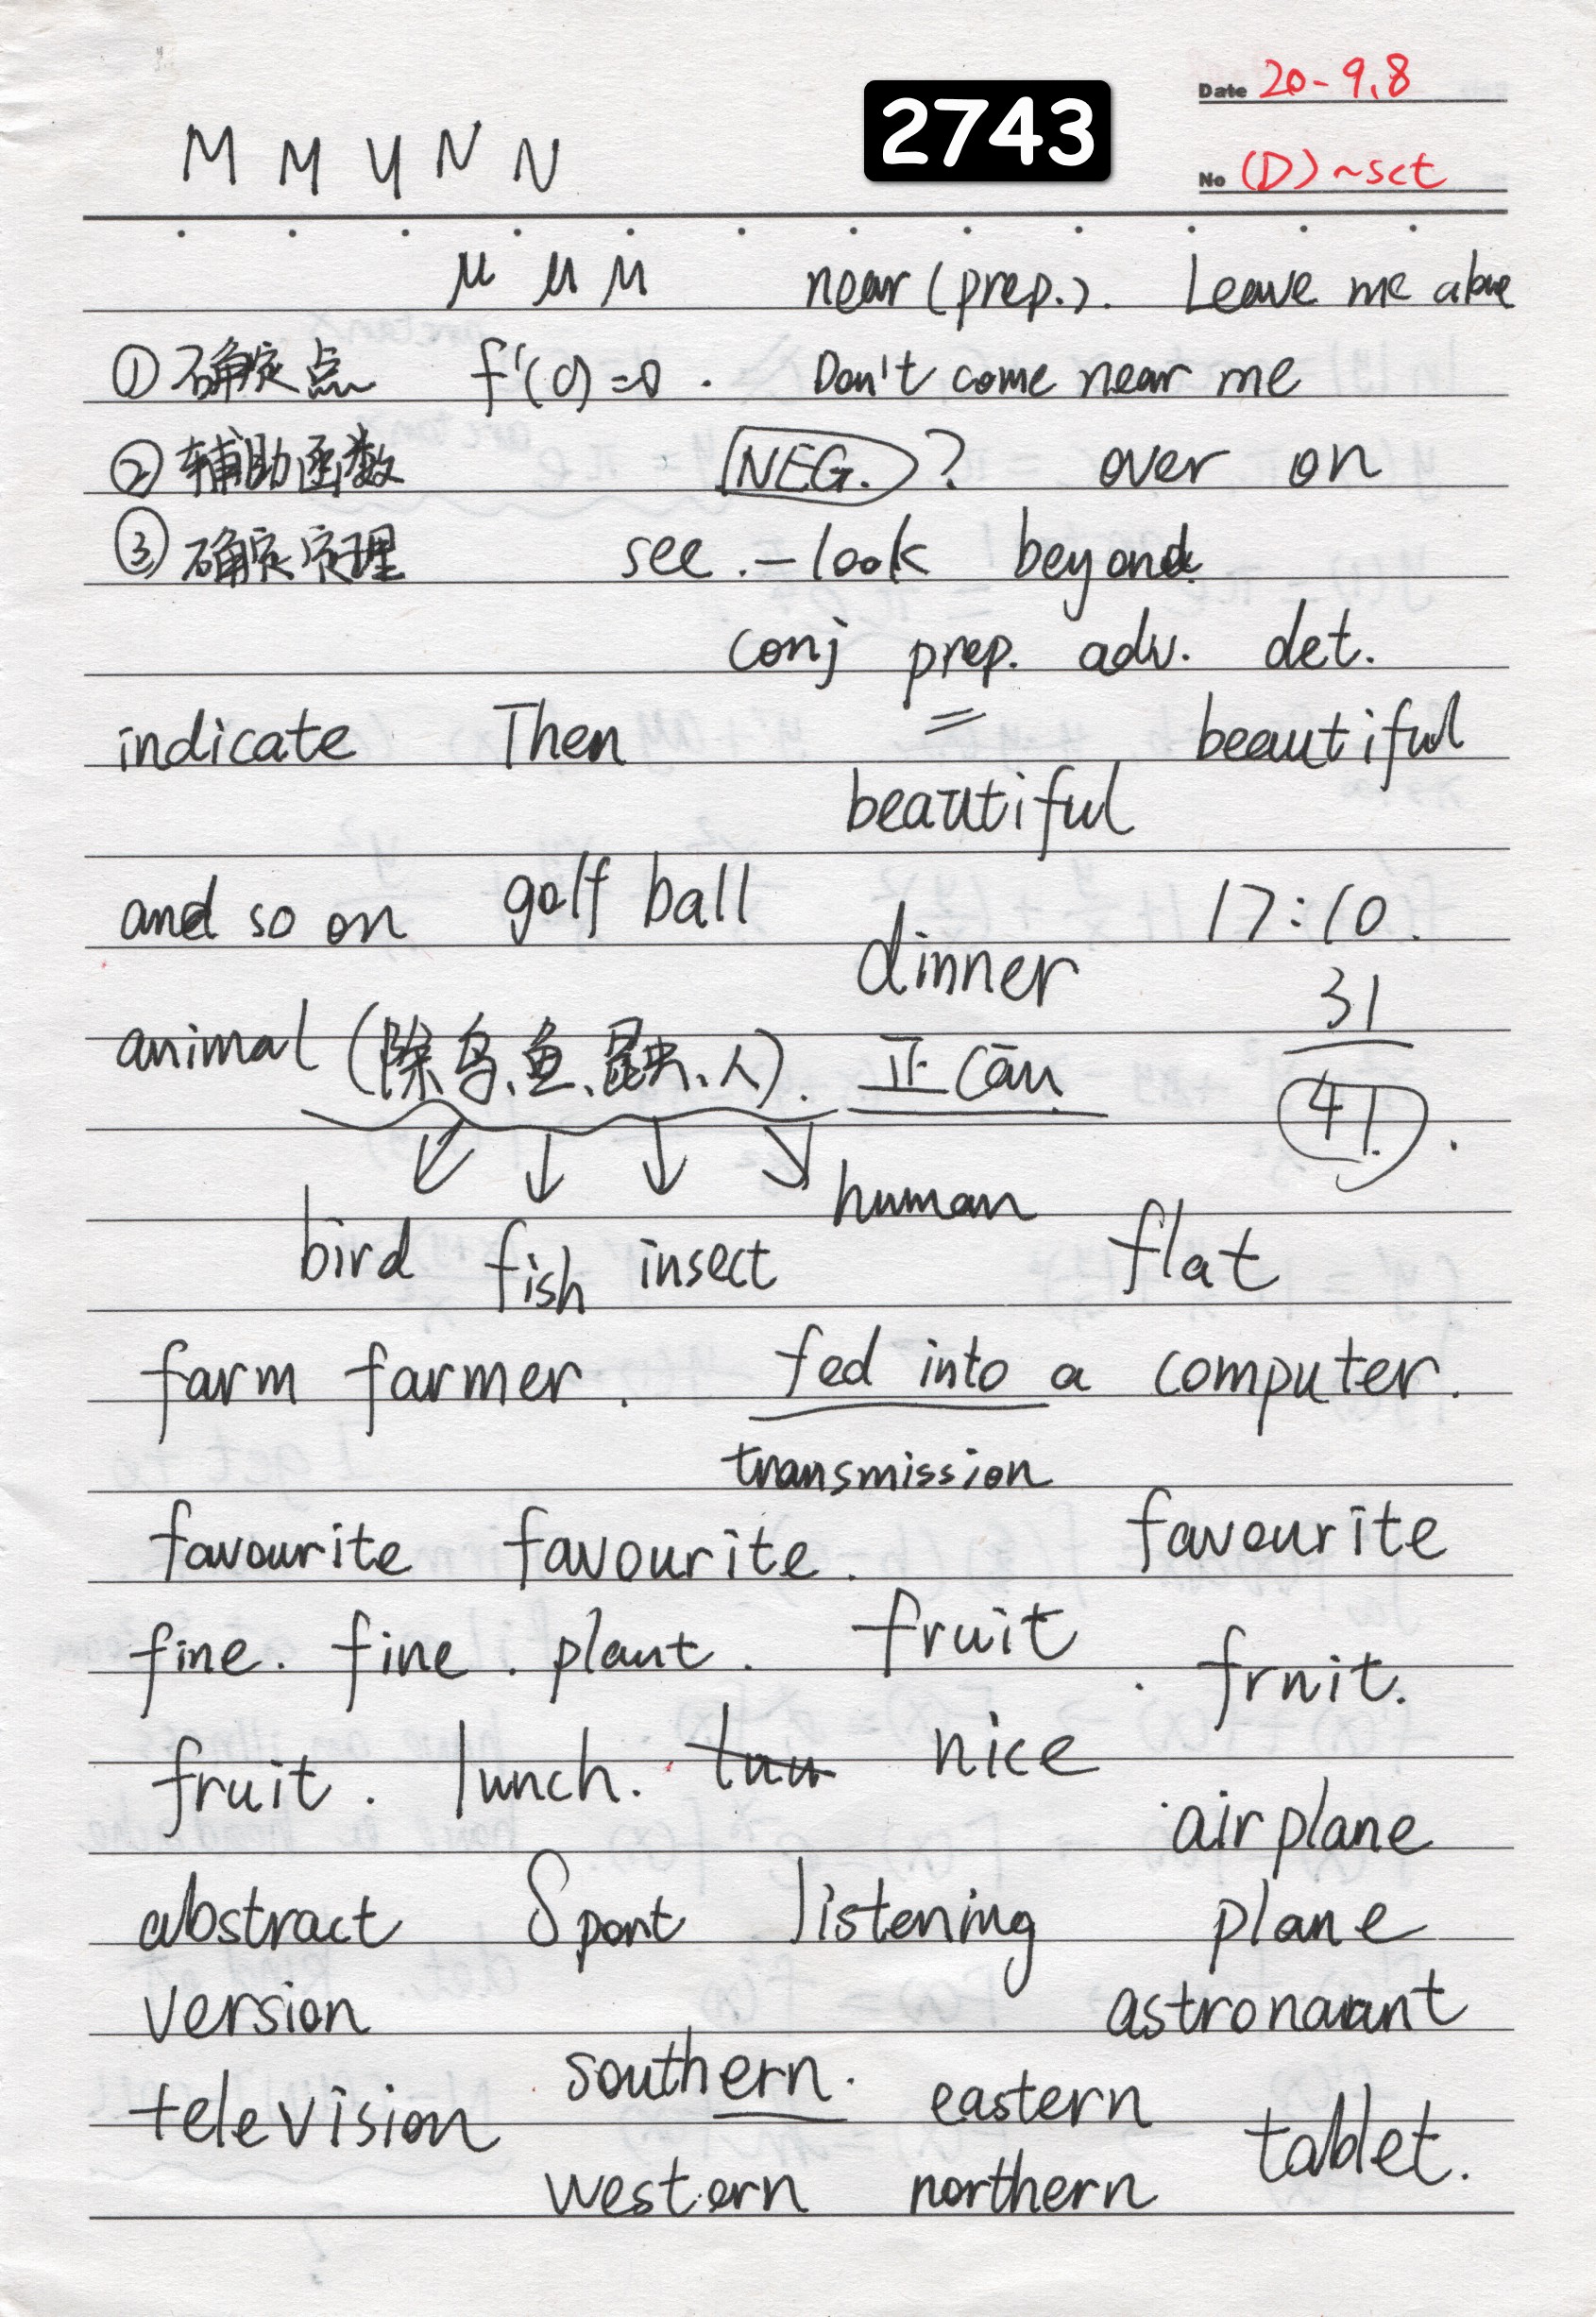 2743
Date 20-9.8
M M Y N N
No (D)~sct
μ μ M near (prep.). Leave me alone
①确定点 f'(0)=0. Don't come near me
②辅助函数 NEG. ? over on
③确定定理 see.-look beyond
conj prep. adv. det.
indicate Then = beautiful
beautiful
and so on golf ball 17:10.
dinner 31
animal (除鸟、鱼、昆虫、人). 正Cān 41.
human
bird fish insect flat
farm farmer. fed into a computer.
transmission
favourite favourite. favourite
fine. fine. plant. fruit. fruit.
fruit. lunch. nice
airplane
abstract Sport listening plane
version astronaut
southern. eastern
television tablet.
western northern